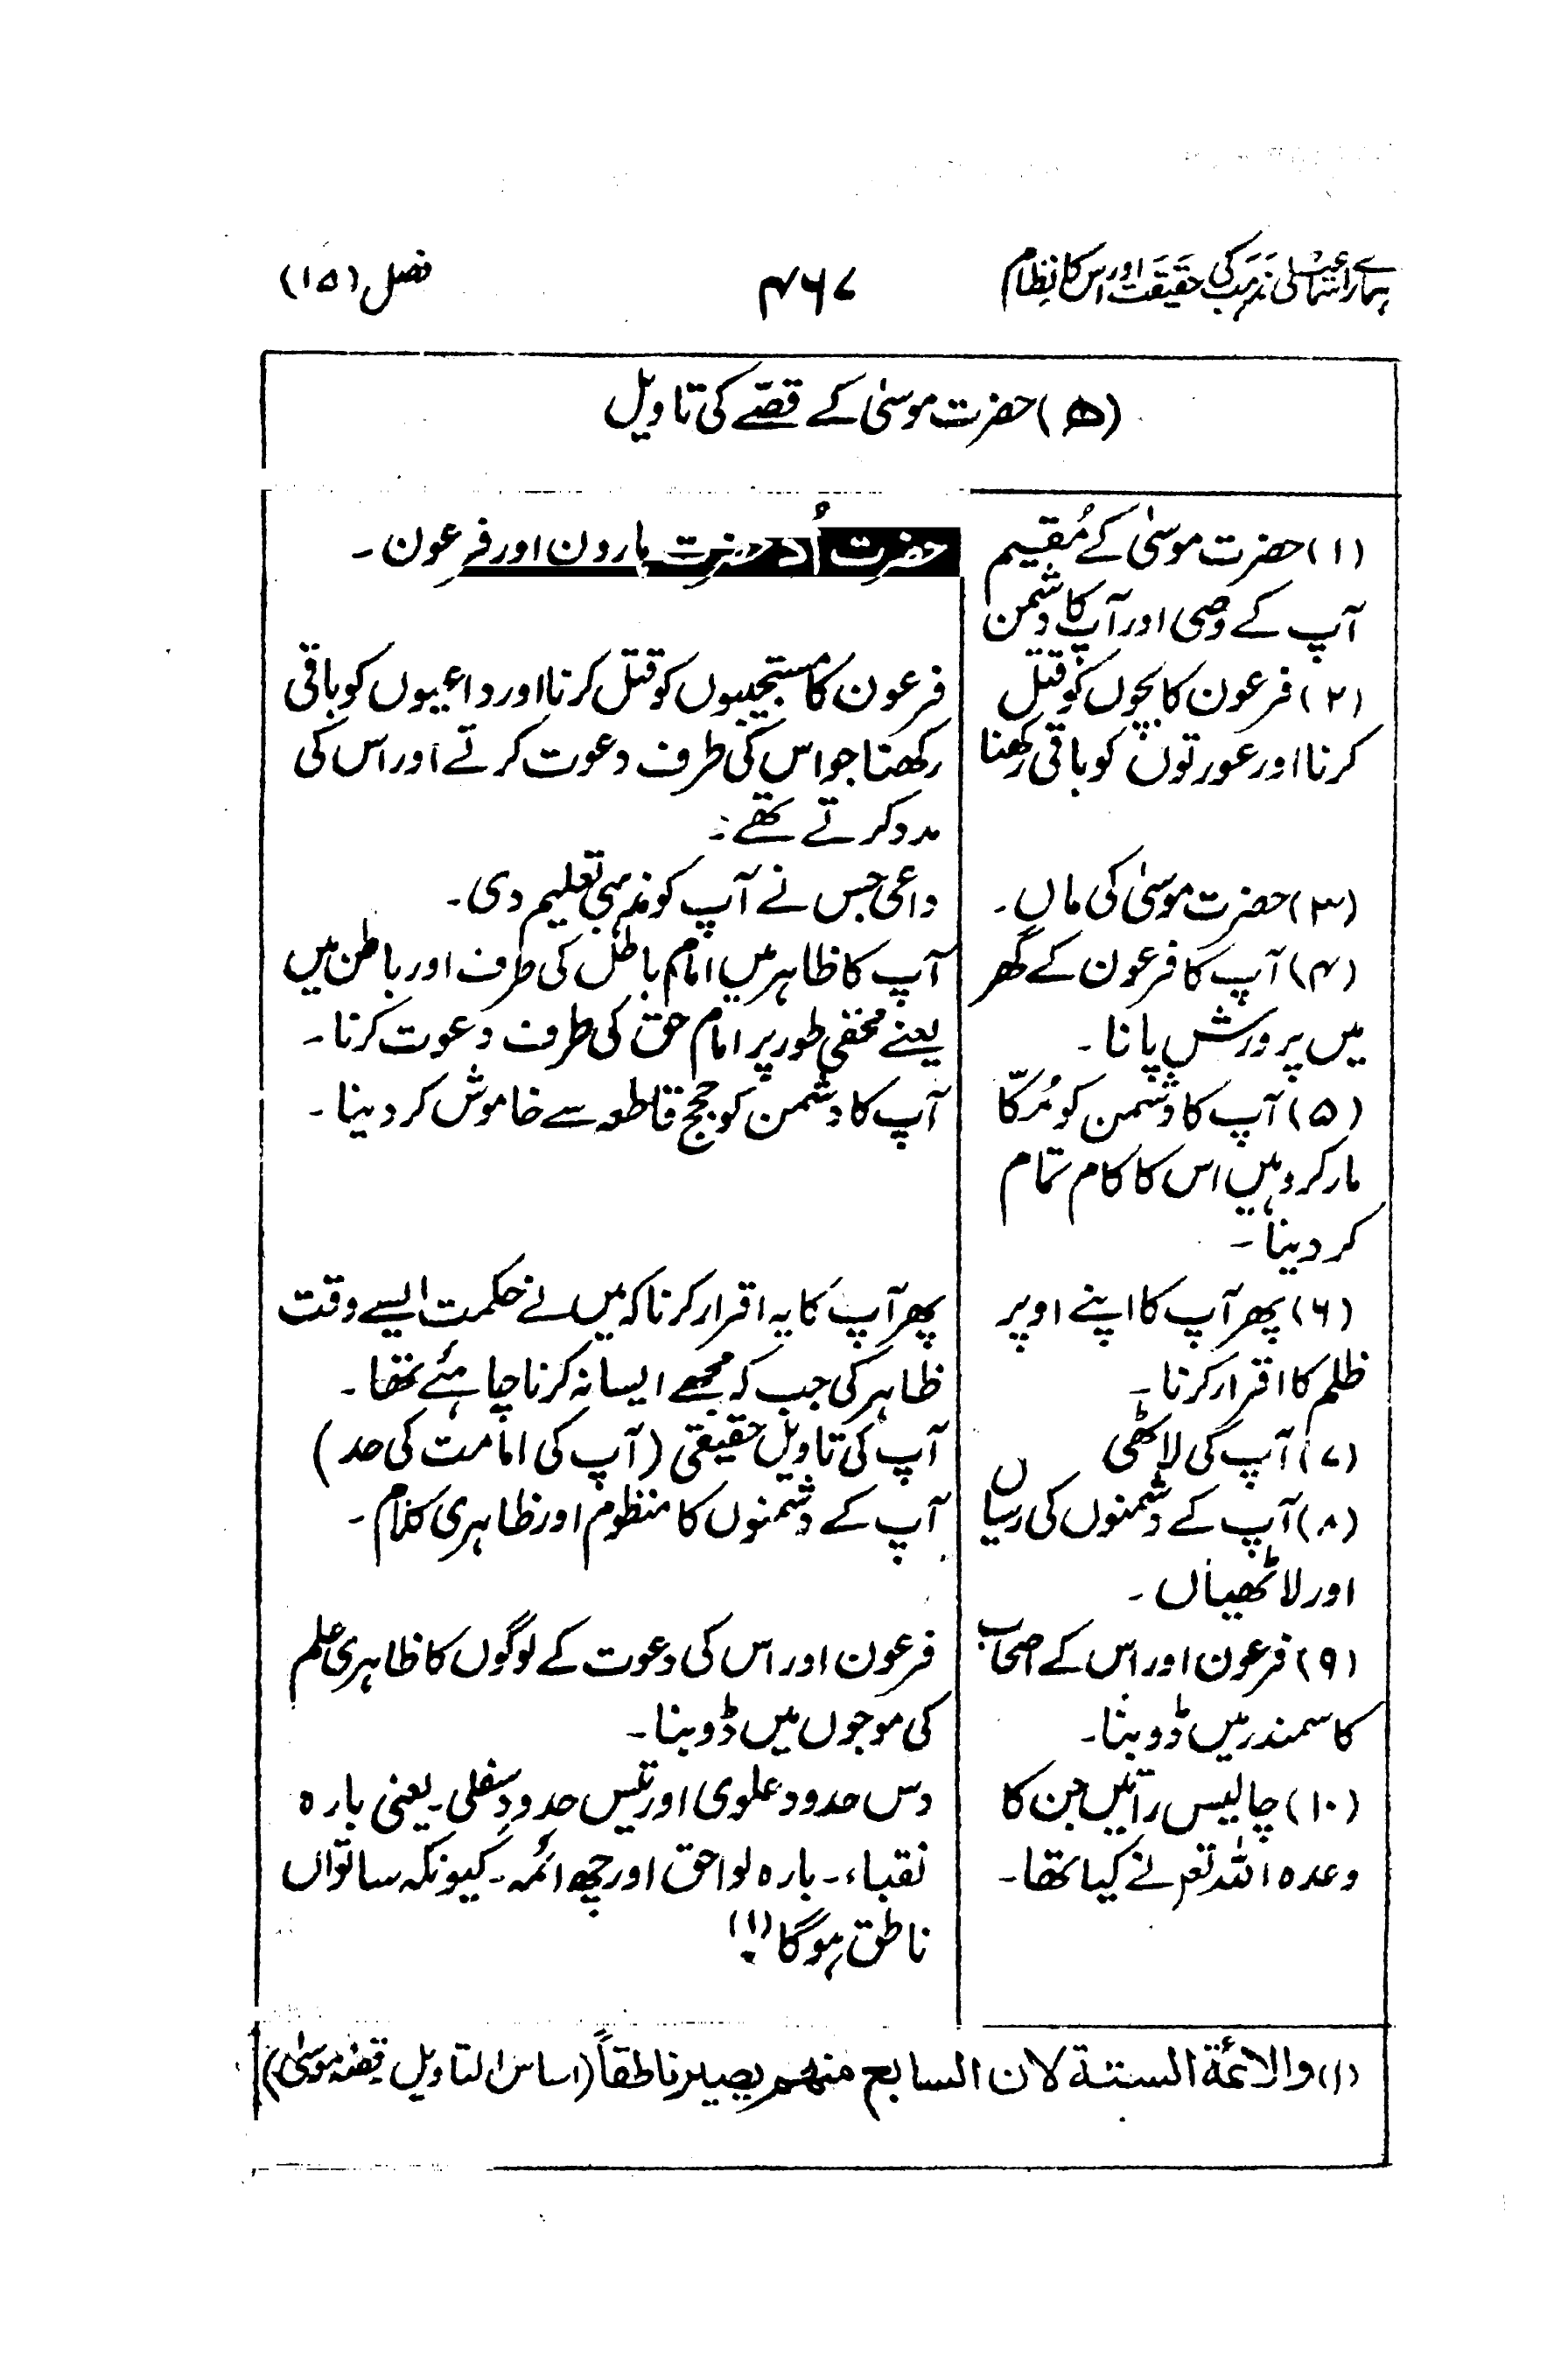 ہمارے اسماعیلی مذہب کی حقیقت اور اس کا نظام
۴۶۷
فصل (۱۵)
(ھ) حضرت موسیٰ کے قصّے کی تاویل
(۱) حضرت موسیٰ کے مُقیم
آپ کے وصی اور آپ کا دشمن
حضرت اُد حضرت ہارون اور فرعون ۔
(۲) فرعون کا بچوں کو قتل
کرنا اور عورتوں کو باقی رکھنا
فرعون کا مستجیبوں کو قتل کرنا اور داعیوں کو باقی
رکھنا جو اس کی طرف دعوت کرتے اور اس کی
مدد کرتے تھے ۔
(۳) حضرت موسیٰ کی ماں ۔
داعی جس نے آپ کو مذہبی تعلیم دی ۔
(۴) آپ کا فرعون کے گھر
میں پرورش پانا ۔
آپ کا ظاہر میں امام باطل کی طرف اور باطن میں
یعنے مخفی طور پر امام حق کی طرف دعوت کرنا ۔
(۵) آپ کا دشمن کو مُکّا
مار کر وہیں اس کا کام تمام
کر دینا ۔
آپ کا دشمن کو حججِ قاطعہ سے خاموش کر دینا ۔
(۶) پھر آپ کا اپنے اوپر
ظلم کا اقرار کرنا ۔
پھر آپ کا یہ اقرار کرنا کہ میں نے حکمت ایسے وقت
ظاہر کی جب کہ مجھے ایسا نہ کرنا چاہئے تھا ۔
(۷) آپ کی لاٹھی
آپ کی تاویل حقیقی (آپ کی امامت کی حد)
(۸) آپ کے دشمنوں کی رسیاں
اور لاٹھیاں ۔
آپ کے دشمنوں کا منظوم اور ظاہری کلام ۔
(۹) فرعون اور اس کے اصحاب
کا سمندر میں ڈوبنا ۔
فرعون اور اس کی دعوت کے لوگوں کا ظاہری علم
کی موجوں میں ڈوبنا ۔
(۱۰) چالیس راتیں جن کا
وعدہ اللہ تعم نے کیا تھا ۔
دس حدود علوی اور تیس حدودِ سفلی ۔ یعنی بارہ
نقباء ۔ بارہ لواحق اور چھ ائمہ ۔ کیونکہ ساتواں
ناطق ہوگا (۱)
(۱) والائمۃ الستۃ لان السابع منھم یصیر ناطقاً (اساس التاویل قصۂ موسیٰ)